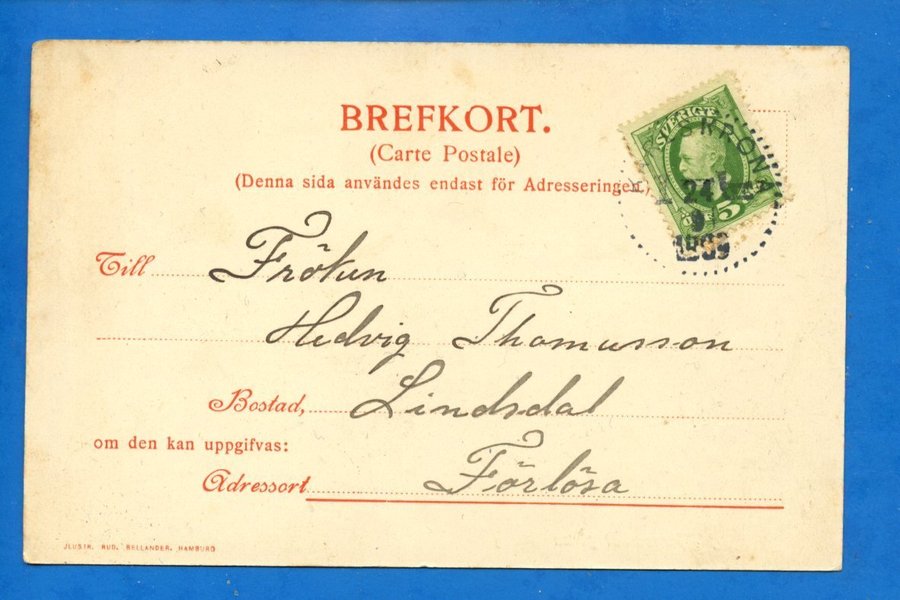 BREFKORT.
(Carte Postale)
(Denna sida användes endast för Adresseringen.)
SVERIGE
5
KRONA
24
9
1899
Till Fröken
Hedvig Thomusson
Bostad, Lindsdal
om den kan uppgifvas:
Adressort Förlösa
JLUSTR. RUD. BELLANDER, HAMBURG